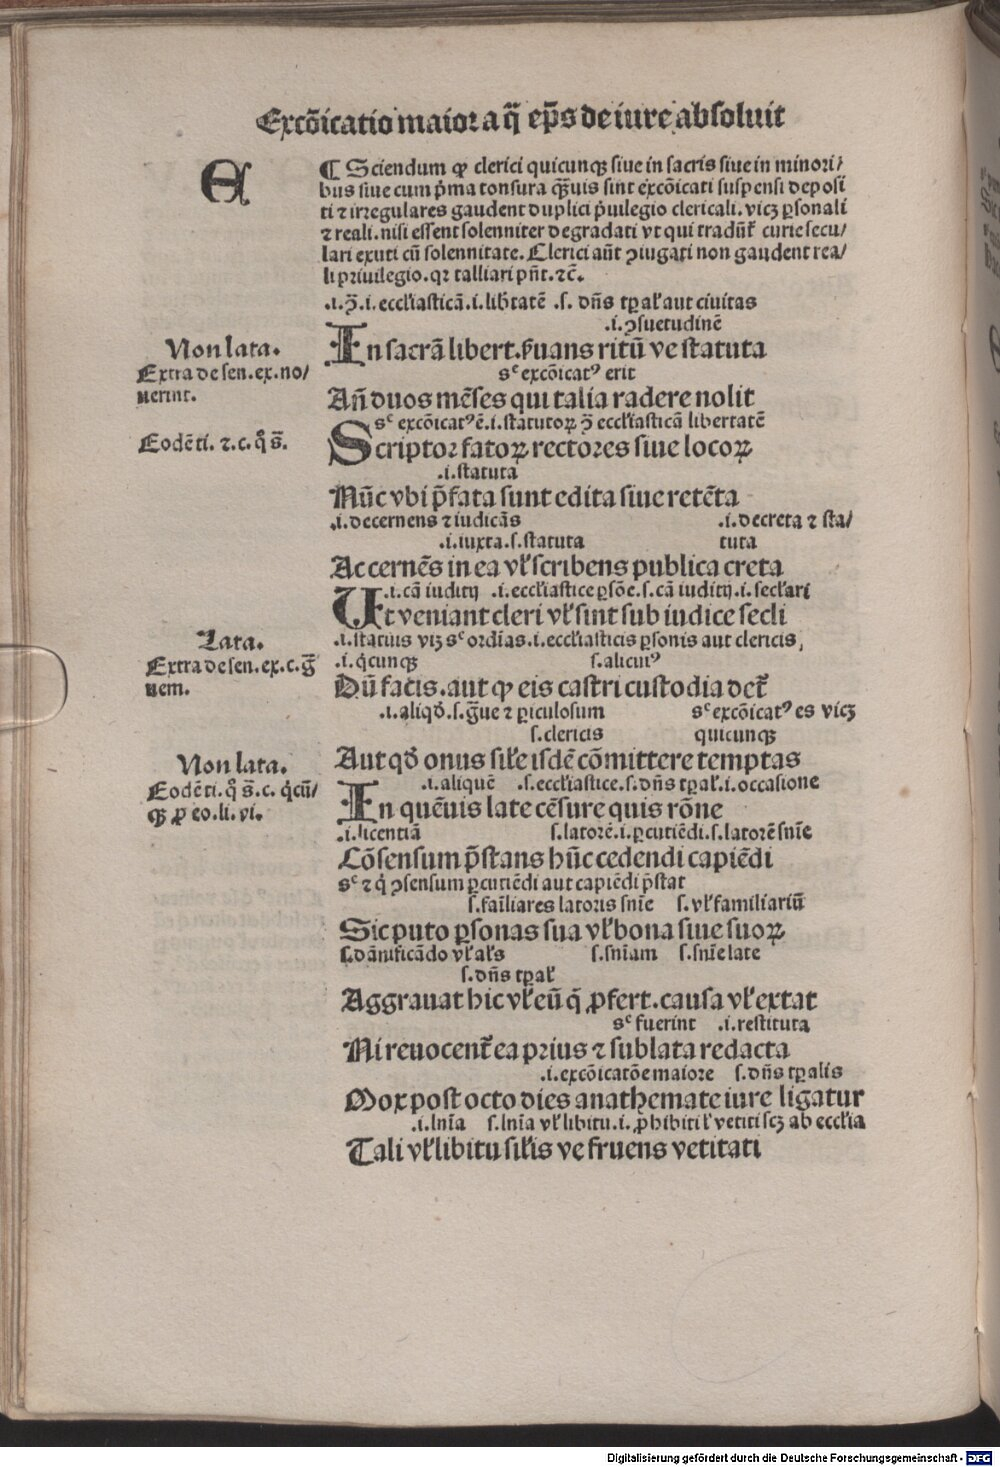 Excõicatio maior a q̃ ep̃s de iure absoluit
E
¶ Sciendum ꝙ clerici quicunqꝫ siue in sacris siue in minori/
bus siue cum p̃ma tonsura q̃uis sint excõicati suspensi deposi
ti ⁊ irregulares gaudent duplici p̃uilegio clericali. vicꝫ ꝑsonali
⁊ reali. nisi essent solenniter degradati vt qui tradũt̃ curie secu/
lari exuti cũ solennitate. Clerici aũt ꝯiugati non gaudent rea/
li priuilegio. qꝛ talliari pñt. ⁊c̃.
.i. ꝯ̃ .i. eccłiasticã .i. lib̃tatẽ .s. dñs tꝑał aut ciuitas
.i. ꝯsuetudinẽ
Non lata.
In sacrã libert. p̃uans ritũ ve statuta
Extra de sen. ex. no/
uerint.
sᶜ excõicatꝰ erit
Añ duos mẽses qui talia radere nolit
sᶜ excõicatꝰ ẽ .i. statutoꝝ ꝯ̃ eccłiasticã libertatẽ
Eodẽ ti. ⁊. c. q̊ s̃.
Scriptor fatoꝝ rectores siue locoꝝ
.i. statuta
Nũc vbi p̃fata sunt edita siue retẽta
.i. decernens ⁊ iudicãs .i. decreta ⁊ sta/
.i. iuxta .s. statuta tuta
Ac cernẽs in ea vł scribens publica creta
.i. cã iuditij .i. eccłiastice ꝑsõe .s. cã iuditij .i. secłari
Ut veniant cleri vł sint sub iudice secli
Lata.
.i. statuis viꝫ sᶜ ordĩas .i. eccłiasticis ꝑsonis aut clericis,
Extra de sen. ex. c. g̃
uem.
.i. q̇cunqꝫ s. alicuiꝰ
Dũ facis. aut ꝙ eis castri custodia det̃
.i. aliqd̃ .s. g̃ue ⁊ ꝑiculosum sᶜ excõicatꝰ es vicꝫ
s. clericis quicunqꝫ
Non lata.
Aut qd̃ onus siłe isdẽ cõmittere temptas
Eodẽ ti. q̊ s̃. c. q̇cũ/
qꝫ ꝓ eo. li. vi.
.i. aliquẽ .s. eccłiastice .s. dñs tꝑał .i. occasione
In quẽuis late cẽsure quis rõne
.i. licentiã s. latorẽ .i. ꝑcutiẽdi .s. latorẽ snĩe
Cõsensum p̃stans hũc cedendi capiẽdi
sᶜ ⁊ q̇ ꝯsensum ꝑcutiẽdi aut capiẽdi p̃stat
s. faĩliares latoris snĩe s. vł familiariũ
Sic puto ꝑsonas sua vł bona siue suoꝝ
s. dãnificãdo vł ałs s. snĩam s. snĩe late
s. dñs tꝑał
Aggrauat hic vł eũ q̇ ꝓfert. causa vł extat
sᶜ fuerint .i. restituta
Ni reuocent̃ ea prius ⁊ sublata redacta
.i. excõicatõe maiore s. dñs tꝑalis
Mox post octo dies anathemate iure ligatur
.i. lnĩa s. lnĩa vł libitu .i. ꝓhibiti ł vetiti scꝫ ab eccłia
Tali vł libitu siłis ve fruens vetitati
Digitalisierung gefördert durch die Deutsche Forschungsgemeinschaft - DFG